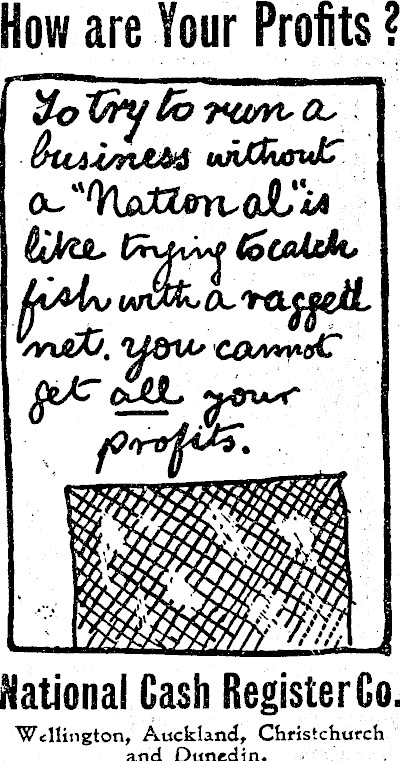 How are Your Profits ?
To try to run a
business without
a "National" is
like trying to catch
fish with a ragged
net. you cannot
get all your
profits.
National Cash Register Co.
Wellington, Auckland, Christchurch
and Dunedin.